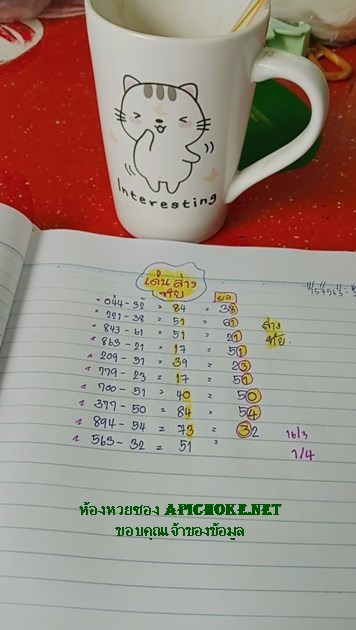 Interesting
เด่น ล่าง
ชัย
ผล
044 - 32 = 84 = 38
221 - 38 = 51 = 61
843 - 61 = 51 = 21
863 - 21 = 17 = 51
209 - 51 = 39 = 23
779 - 23 = 17 = 51
700 - 51 = 40 = 50
377 - 50 = 84 = 54
894 - 54 = 73 = 32
565 - 32 = 51 =
ล่าง
16/3
1/4
ห้องหวยซอง APICHOKE.NET
ขอบคุณเจ้าของข้อมูล